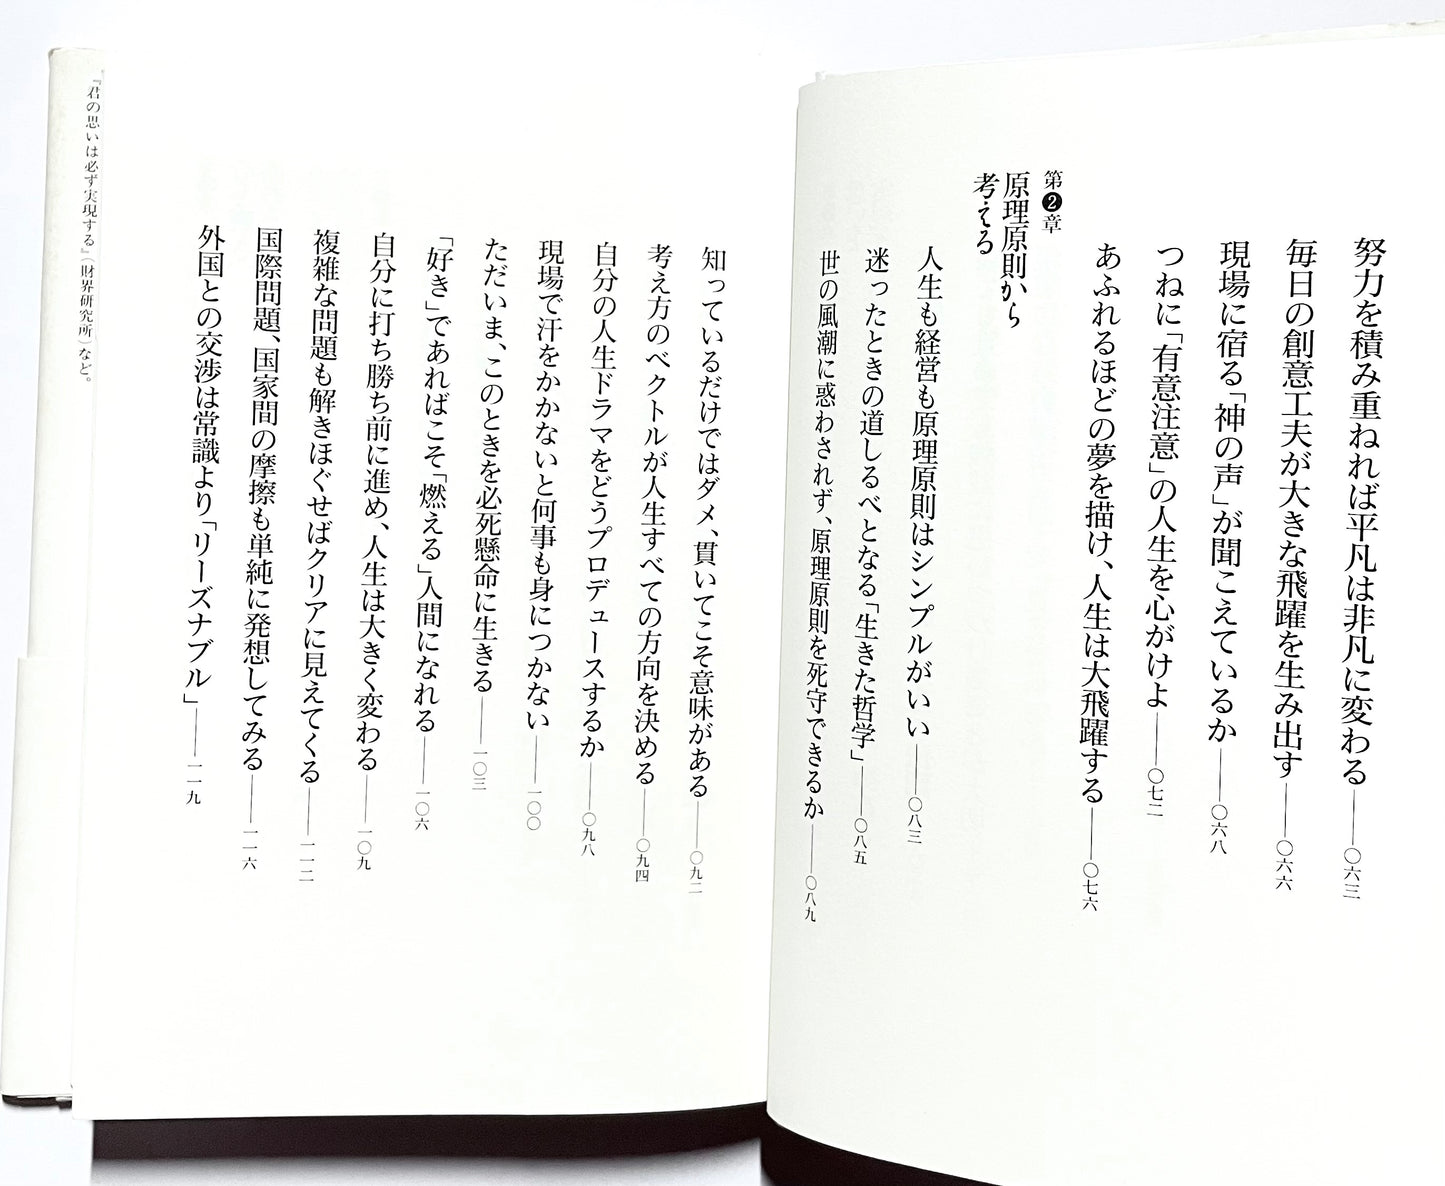 努力を積み重ねれば平凡は非凡に変わる——〇六三
毎日の創意工夫が大きな飛躍を生み出す——〇六六
現場に宿る「神の声」が聞こえているか——〇六八
つねに「有意注意」の人生を心がけよ——〇七二
あふれるほどの夢を描け、人生は大飛躍する——〇七六
第2章
原理原則から
考える
人生も経営も原理原則はシンプルがいい——〇八三
迷ったときの道しるべとなる「生きた哲学」——〇八五
世の風潮に惑わされず、原理原則を死守できるか——〇八九
知っているだけではダメ、貫いてこそ意味がある——〇九二
考え方のベクトルが人生すべての方向を決める——〇九四
自分の人生ドラマをどうプロデュースするか——〇九八
現場で汗をかかないと何事も身につかない——一〇〇
ただいま、このときを必死懸命に生きる——一〇三
「好き」であればこそ「燃える」人間になれる——一〇六
自分に打ち勝ち前に進め、人生は大きく変わる——一〇九
複雑な問題も解きほぐせばクリアに見えてくる——一一二
国際問題、国家間の摩擦も単純に発想してみる——一一六
外国との交渉は常識より「リーズナブル」——一一九
『君の思いは必ず実現する』（財界研究所）など。